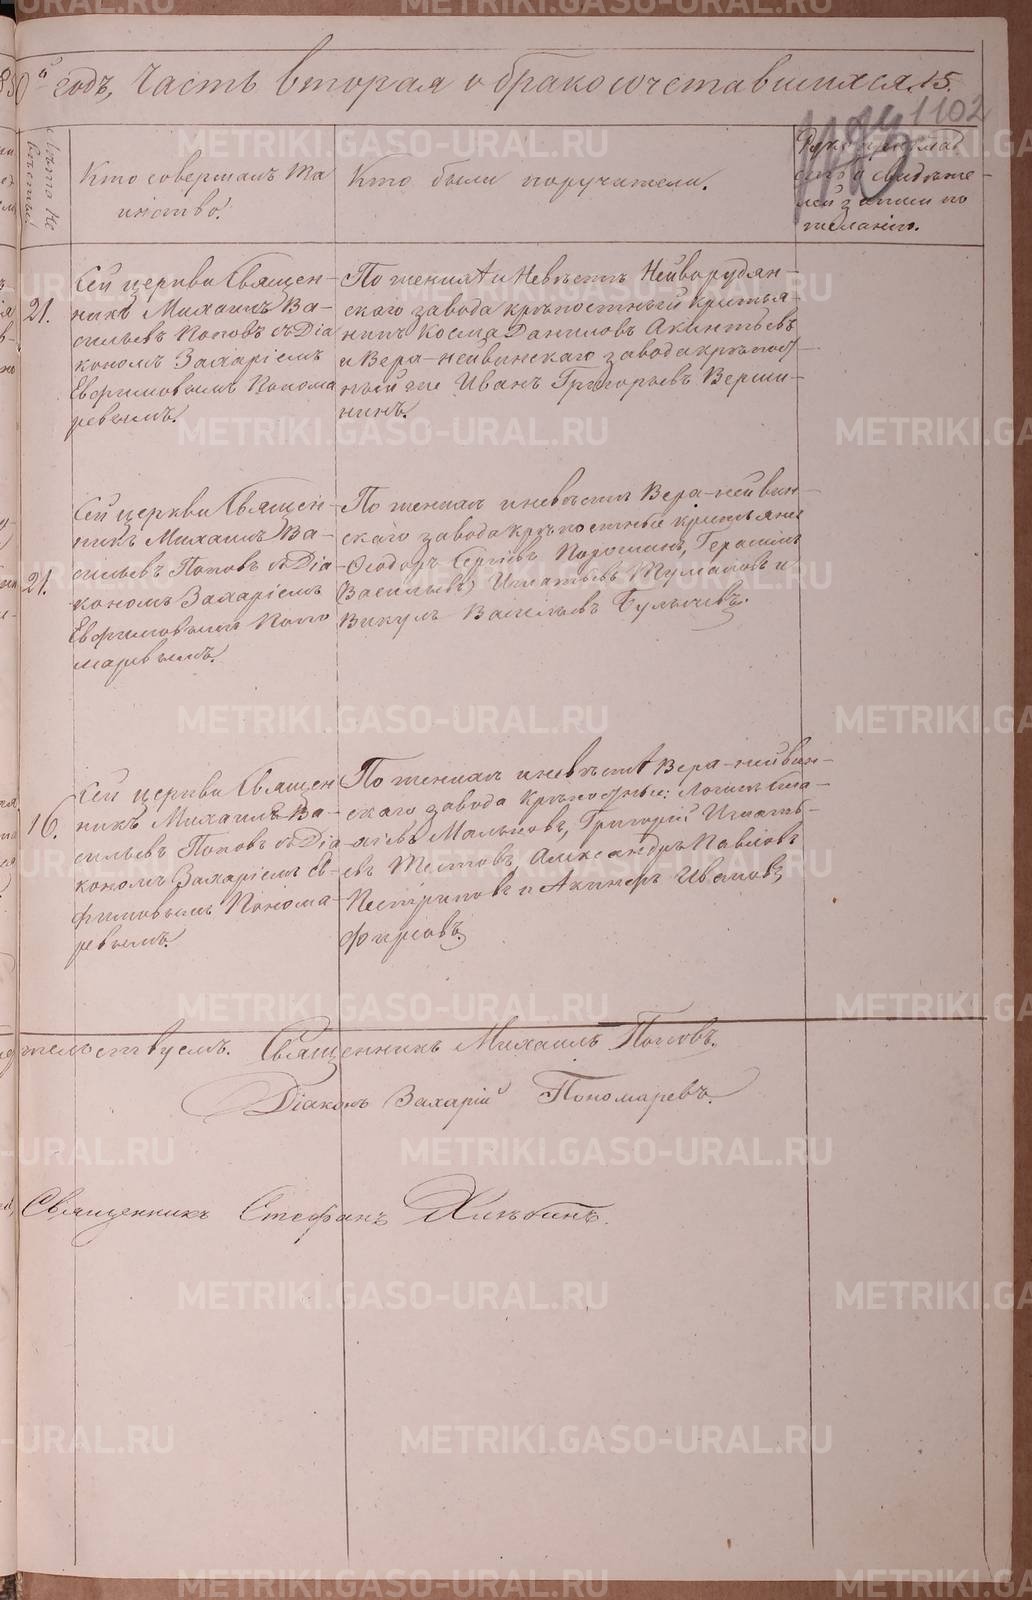 годъ, Часть вторая о бракосочетавшихся 15.
1102
Лѣта не
вѣсты
Кто совершалъ Та
инство.
Кто были поручители.
свидѣте-
лей записи по
желанію.
21.
Сей церкви Священ-
никъ Михаилъ Ва-
сильевъ Поповъ съ Діа
кономъ Захаріемъ
Евфимовымъ Понома
ревымъ.
По женихѣ и Невѣстѣ Нейворудян-
скаго завода крѣпостный крестья-
нинъ Косма Даниловъ Акинтьевъ
и Верх-нейвинскаго завода крѣпост
ный же Иванъ Григорьевъ Верши-
нинъ.
21.
Сей церкви Священ-
никъ Михаилъ Ва-
сильевъ Поповъ съ Діа
кономъ Захаріемъ
Евфимовымъ Поно
маревымъ.
По женихѣ и невѣстѣ Верх-нейвин-
скаго завода крѣпостные крестьяне
Ѳеодоръ Сергѣевъ Порошинъ, Герасимъ
(Васильевъ) Игнатьевъ Тумановъ и
Викулъ Васильевъ Булычевъ.
16.
Сей церкви Священ
никъ Михаилъ Ва-
сильевъ Поповъ съ Діа
кономъ Захаріемъ Ев
фимовымъ Понома-
ревымъ.
По женихѣ и невѣстѣ Верх-нейвин-
скаго завода крѣпостные:
Мальковъ, Григорій Игнать-
евъ Александръ Павловъ
Пестриковъ и Ивановъ
Фирсовъ.
тельствуемъ. Священникъ Михаилъ Поповъ.
Діаконъ Захарій Пономаревъ.
Священникъ Стефанъ Хлѣбинъ.
METRIKI.GASO-URAL.RU